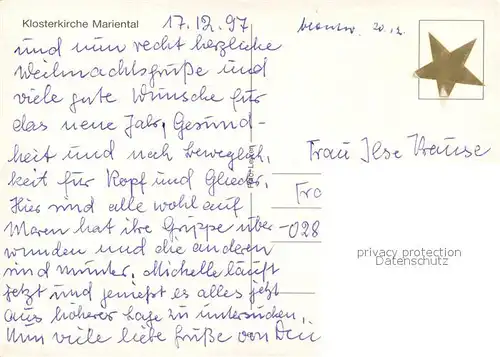 Klosterkirche Mariental
17.12.97
20.12.
und nun recht herzliche
Weihnachtsgrüße und
viele gute Wünsche für
das neue Jahr, Gesund-
heit und noch beweglich,
keit für Kopf und Glieder.
Hier sind alle wohl auf
Maren hat ihre Grippe über
wunden und die anderen
sind munter. Michelle läuft
jetzt und genießt es alles jetzt
aus höherer Lage zu untersuchen.
Nun viele liebe Grüße von Dei
Frau Ilse Krause
Fra
-028
privacy protection
Datenschutz